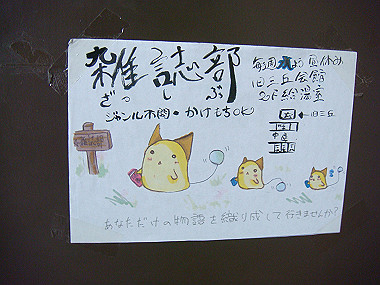 雑誌部
ざっしぶ
ジャンル不問・かけもちOK
毎週 昼休み
旧三丘会館
2F 総温室
←旧三丘
あなただけの物語を織り成して行きませんか?